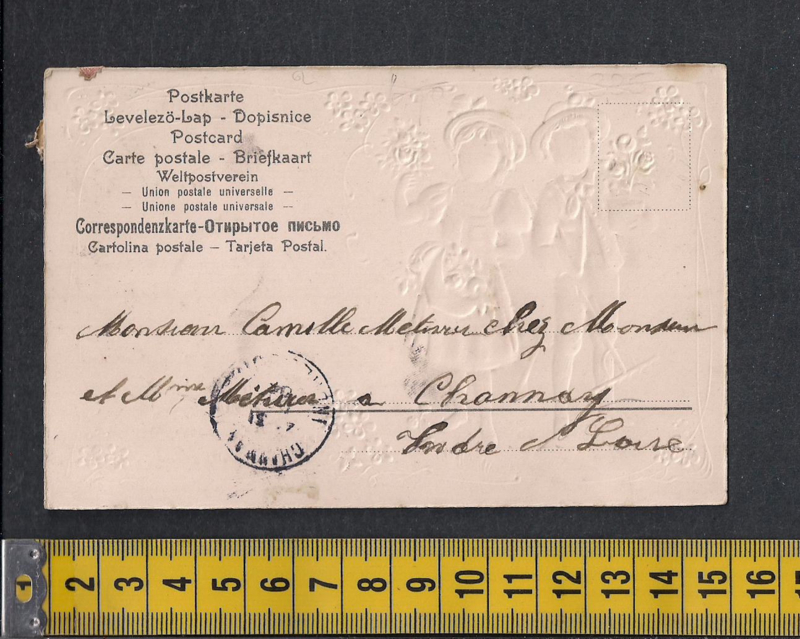 Postkarte
Levelező-Lap - Dopisnice
Postcard
Carte postale - Briefkaart
Weltpostverein
— Union postale universelle —
— Unione postale universale —
Correspondenzkarte-Открытое письмо
Cartolina postale – Tarjeta Postal.
Monsieur Camille Metivier chez Monsieur
et Mme Metivier a Channay
Indre et Loire
CHANNAY
1 2 3 4 5 6 7 8 9 10 11 12 13 14 15 16